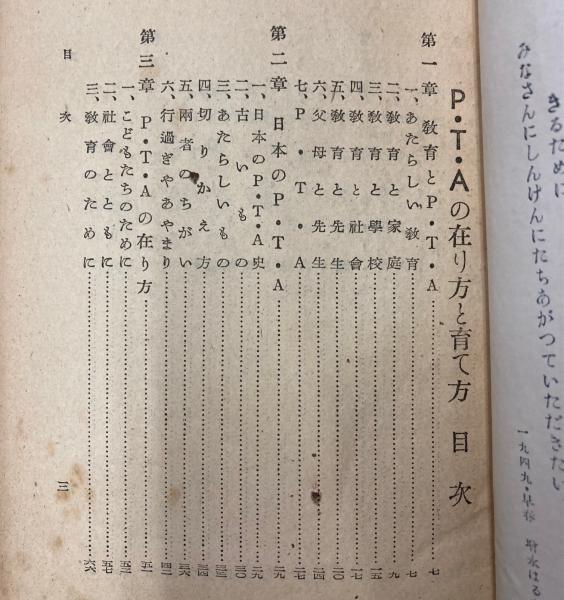 きるために
みなさんにしんけんにたちあがつていただきたい
一九四九・早春
P・T・Aの在り方と育て方 目次
第一章 敎育とP・T・A……七
一、あたらしい敎育……七
二、敎育と家庭……九
三、敎育と學校……一五
四、敎育と社會……一七
五、敎育と先生……二〇
六、父母と先生……二四
七、P・T・A……二七
第二章 日本のP・T・A……二九
一、日本のP・T・A史……二九
二、古いもの……三〇
三、あたらしいもの……三三
四、切りかえ方……三四
五、兩者のちがい……三六
六、行過ぎやあやまり……四二
第三章 P・T・Aの在り方……五一
一、こどもたちのために……五三
二、社會とともに……五七
三、敎育のために……六六
目次
三